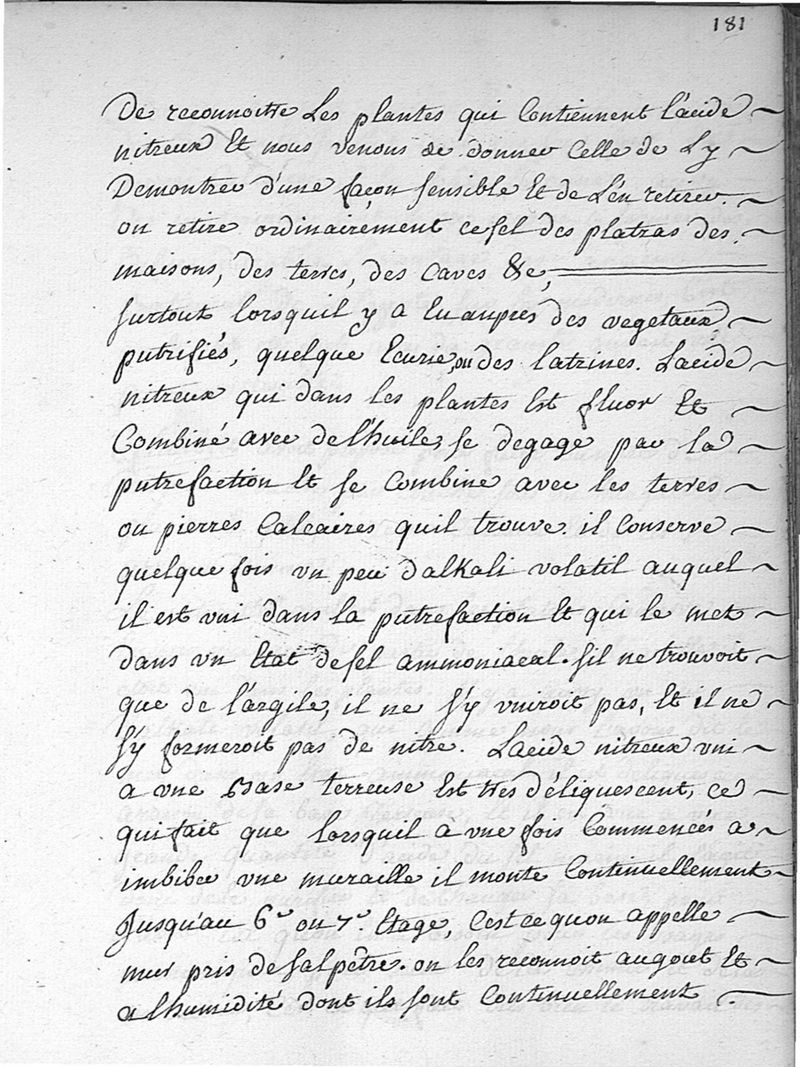 181
De reconnoitre Les plantes qui Contiennent l'acide
nitreux Et nous venons de donner Celle de L'y
Demontrer d'une façon sensible Et de L'en retirer.
on retire ordinairement ce sel des platras des
maisons, des terres, des caves &c,
surtout lorsquil y a Eu aupres des vegetaux
putrifiés, quelque Ecurie, ou des latrines. L'acide
nitreux qui dans les plantes Est fluor Et
Combiné avec de l'huile, se degage par la
putrefaction Et se Combine avec les terres
ou pierres Calcaires quil trouve. il Conserve
quelque fois un peu d'alkali volatil auquel
il est uni dans la putrefaction Et qui le met
dans un Etat de sel ammoniacal. s'il ne trouvoit
que de l'argile, il ne s'y uniroit pas, Et il ne
s'y formeroit pas de nitre. L'acide nitreux uni
a une Base terreuse Est tres déliquescent, ce
qui fait que lorsquil a une fois Commencés a
imbiber une muraille il monte Continuellement
Jusqu'au 6.e ou 7.e Etage C'est ce qu'on appelle
mur pris de salpêtre. on les reconnoit au gout Et
a l'humidité dont ils sont Continuellement